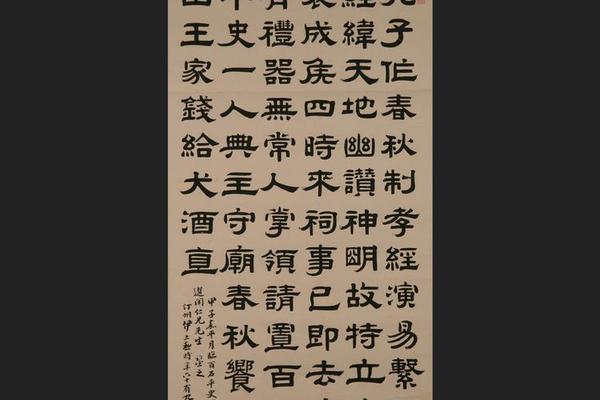 孔子作春秋制孝經演易繫
經緯天地幽讚神明故特立
褒成侯四時來祠事已即去
有禮器無常人掌領請置百
卒史一人典主守廟春秋饗
出王家錢給犬酒直
甲子嘉平月臨百石卒史
仁兄先生鑒之
汀州伊立勳時年六十有